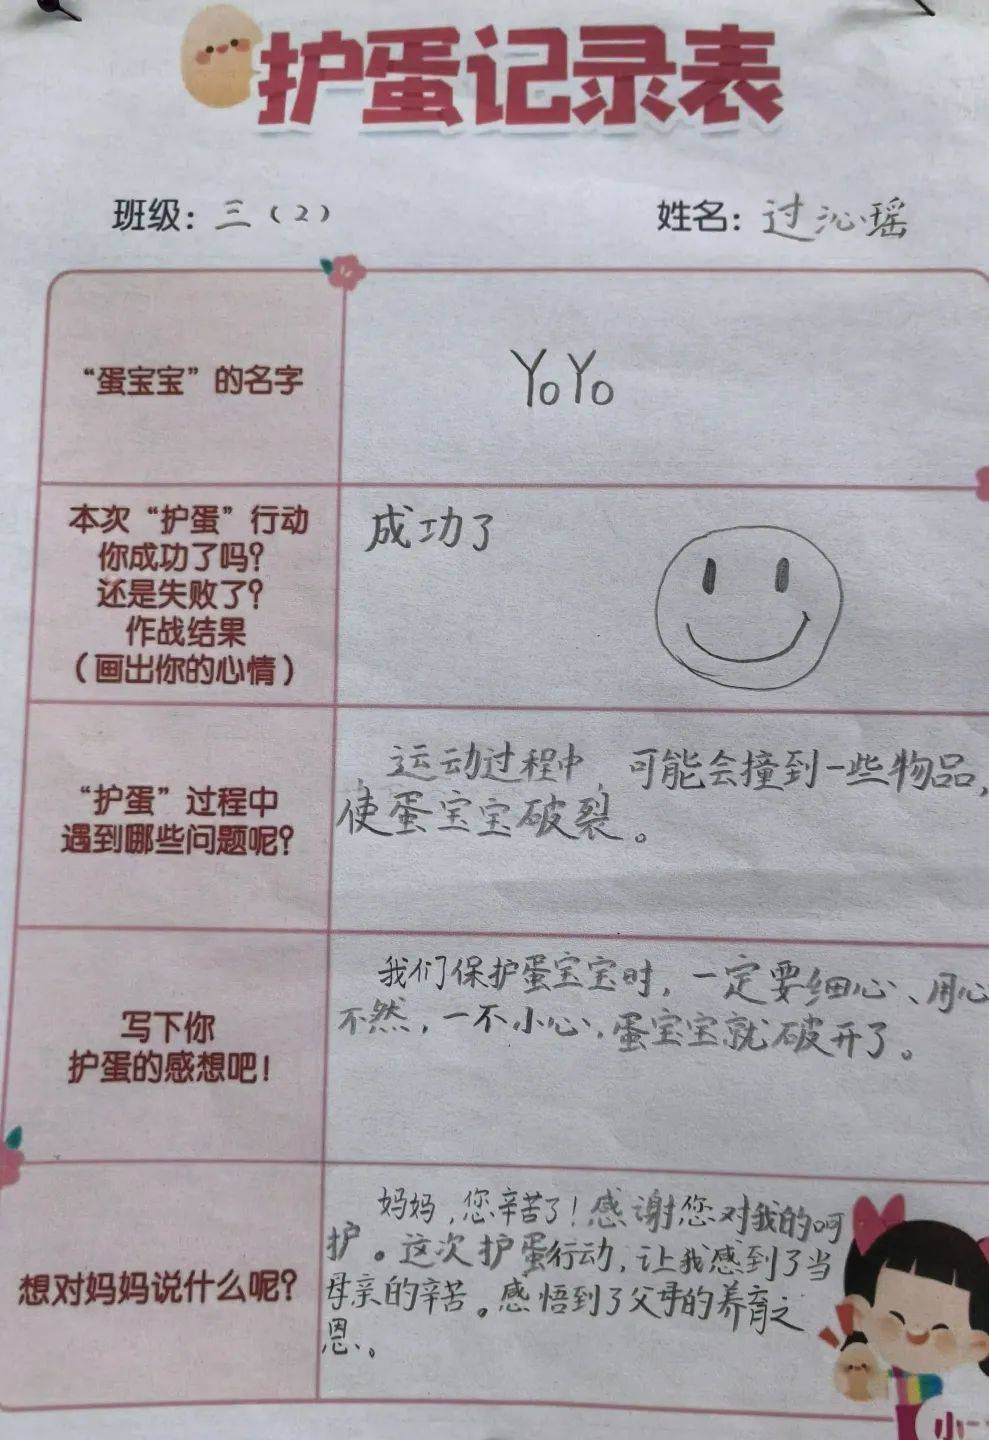 护蛋记录表
班级：三（2）
姓名：过沁瑶
“蛋宝宝”的名字
YoYo
本次“护蛋”行动
你成功了吗？
还是失败了？
作战结果
（画出你的心情）
成功了
“护蛋”过程中
遇到哪些问题呢？
运动过程中，可能会撞到一些物品，
使蛋宝宝破裂。
写下你
护蛋的感想吧！
我们保护蛋宝宝时，一定要细心、用心
不然，一不小心，蛋宝宝就破开了。
想对妈妈说什么呢？
妈妈，您辛苦了！感谢您对我的呵
护。这次护蛋行动，让我感到了当
母亲的辛苦。感悟到了父母的养育之
恩。
小